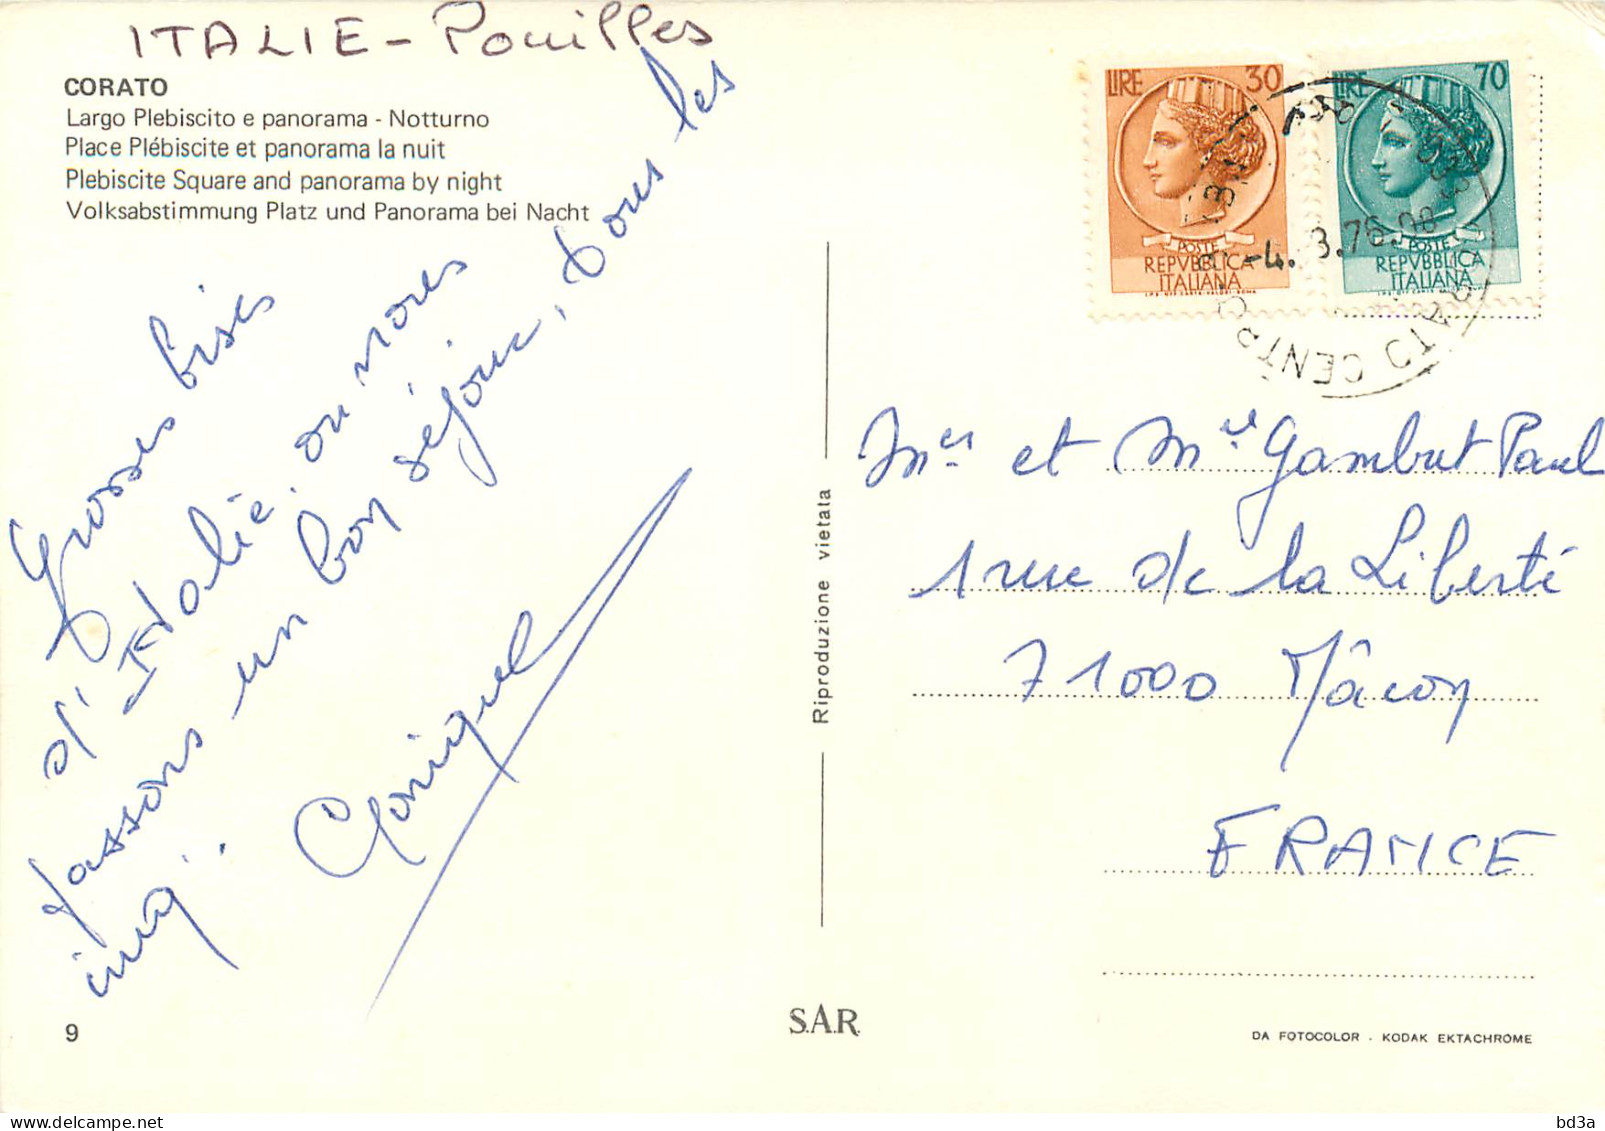 ITALIE - Pouilles
CORATO
Largo Plebiscito e panorama - Notturno
Place Plébiscite et panorama la nuit
Plebiscite Square and panorama by night
Volksabstimmung Platz und Panorama bei Nacht
Grosses bises
d'Italie, ou nous
passons un bon séjour, tous les
cinq.
Riproduzione vietata
LIRE 30
POSTE
REPVBBLICA
ITALIANA
LIRE 70
POSTE
REPVBBLICA
ITALIANA
-4. 3.76.08
CENTRO
Mer et Mlle Gambut Paul
1 rue de la Liberté
71000 Mâcon
FRANCE
9
S.A.R.
DA FOTOCOLOR - KODAK EKTACHROME
bd3a